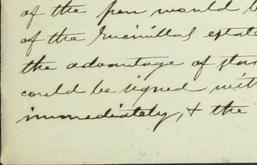 of the pen would b
of the Encinitas estate
the advantage of
could be signed wit
immediately, + the